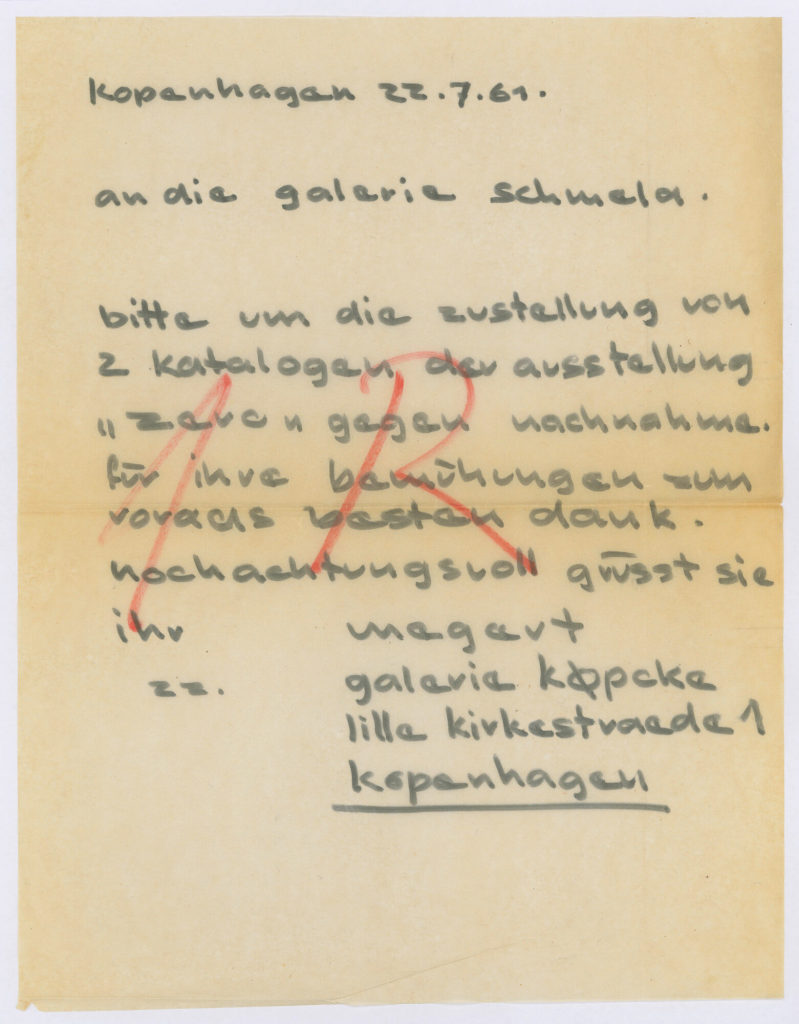 kopenhagen 22.7.61.
an die galerie schmela.
bitte um die zustellung von
2 katalogen der ausstellung
„zero" gegen nachnahme.
für ihre bemühungen zum
voraus besten dank.
hochachtungsvoll grüsst sie
ihr megert
zz. galerie køpcke
lille kirkestraede 1
kopenhagen
1 R